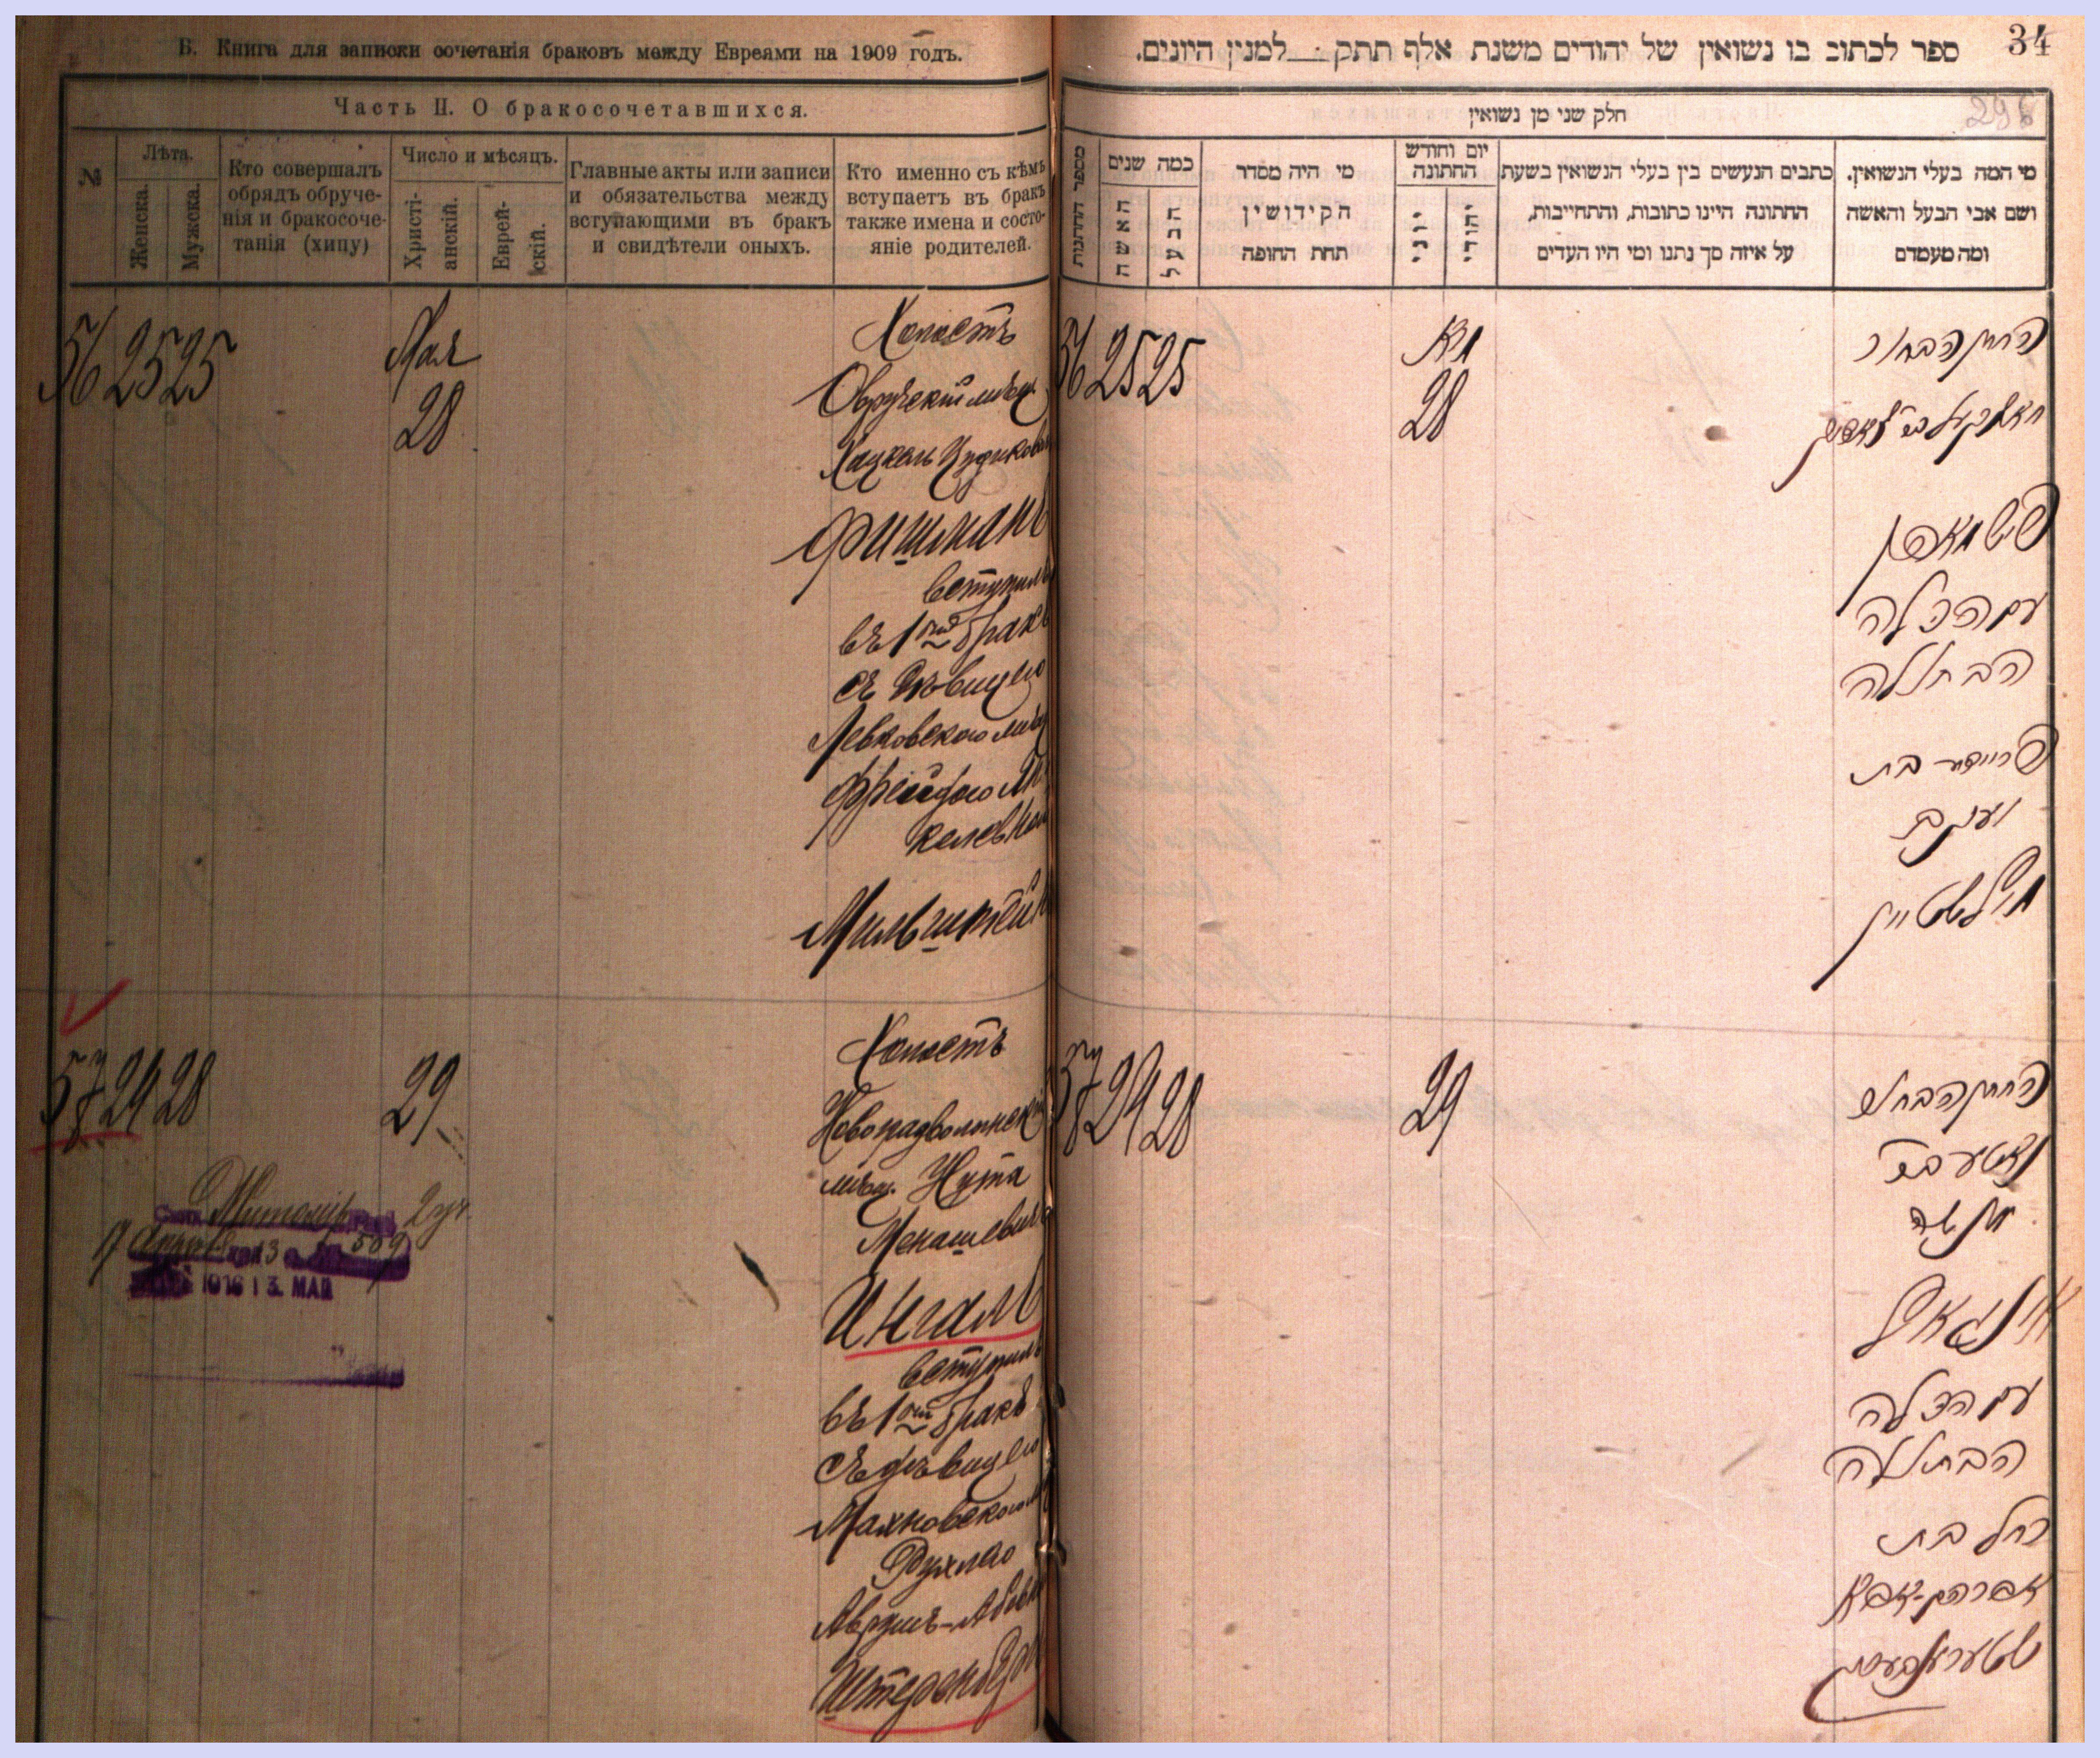 Б. Книга для записки сочетанія браковъ между Евреями на 1909 годъ.
Часть II. О бракосочетавшихся.
№
Лѣта.
Женска.
Мужска.
Кто совершалъ
обрядъ обруче-
нія и бракосоче-
танія (хипу)
Число и мѣсяцъ.
Христі-
анскій.
Еврей-
скій.
Главные акты или записи
и обязательства между
вступающими въ бракъ
и свидѣтели оныхъ.
Кто именно съ кѣмъ
вступаетъ въ бракъ
также имена и состо-
яніе родителей.
56 25 25
Мая
28
Холостъ
Овручскій мѣщ.
Хацкель
Фишманъ
вступилъ
въ 1ый бракъ
съ дѣвицею
Левковского
Фрейдою
Мильштейн
57 24 28
29
Холостъ
Новоградволынск
мѣщ. Нута
Менашевичъ
Ингалъ
вступилъ
въ 1ый бракъ
съ дѣвицею
Махновского
Рухлею
Аврумъ-Абовн
Штеренберг
13. МАЯ
34
298
ספר לכתוב בו נשואין של יהודים משנת אלף תתק למנין היונים.
חלק שני מן נשואין
מספר החתונות
כמה שנים
האשה
הבעל
מי היה מסדר
הקידושין
תחת החופה
יום וחודש
החתונה
יוני
יהודי
כתבים הנעשים בין בעלי הנשואין בשעת
החתונה היינו כתובות, והתחייבות,
על איזה סך נתנו ומי היו העדים
מי המה בעלי הנשואין.
ושם אבי הבעל והאשה
ומה מעמדם
56 25 25
מאי
28
החתן הבחור
פישמאן
עם הכלה
הבתולה
פריידע בת
יעקב
מילשטיין
57 24 28
29
החתן הבחור
נוטע בר
מנשה
אינגאל
עם הכלה
הבתולה
רחל בת
אברהם-אבא
שטערענבערג